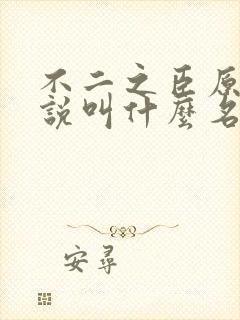 不二之臣原
說叫什麼名
安尋